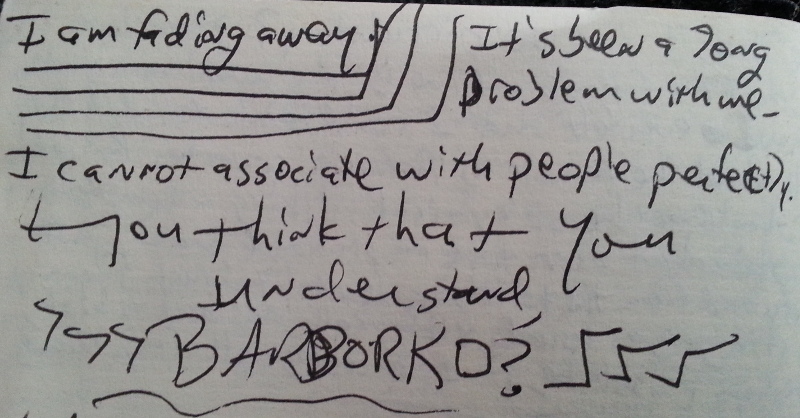 I am fading away.
It's been a long
problem with me_
I cannot associate with people perfectly.
you think that you
understand
BARBORKO?